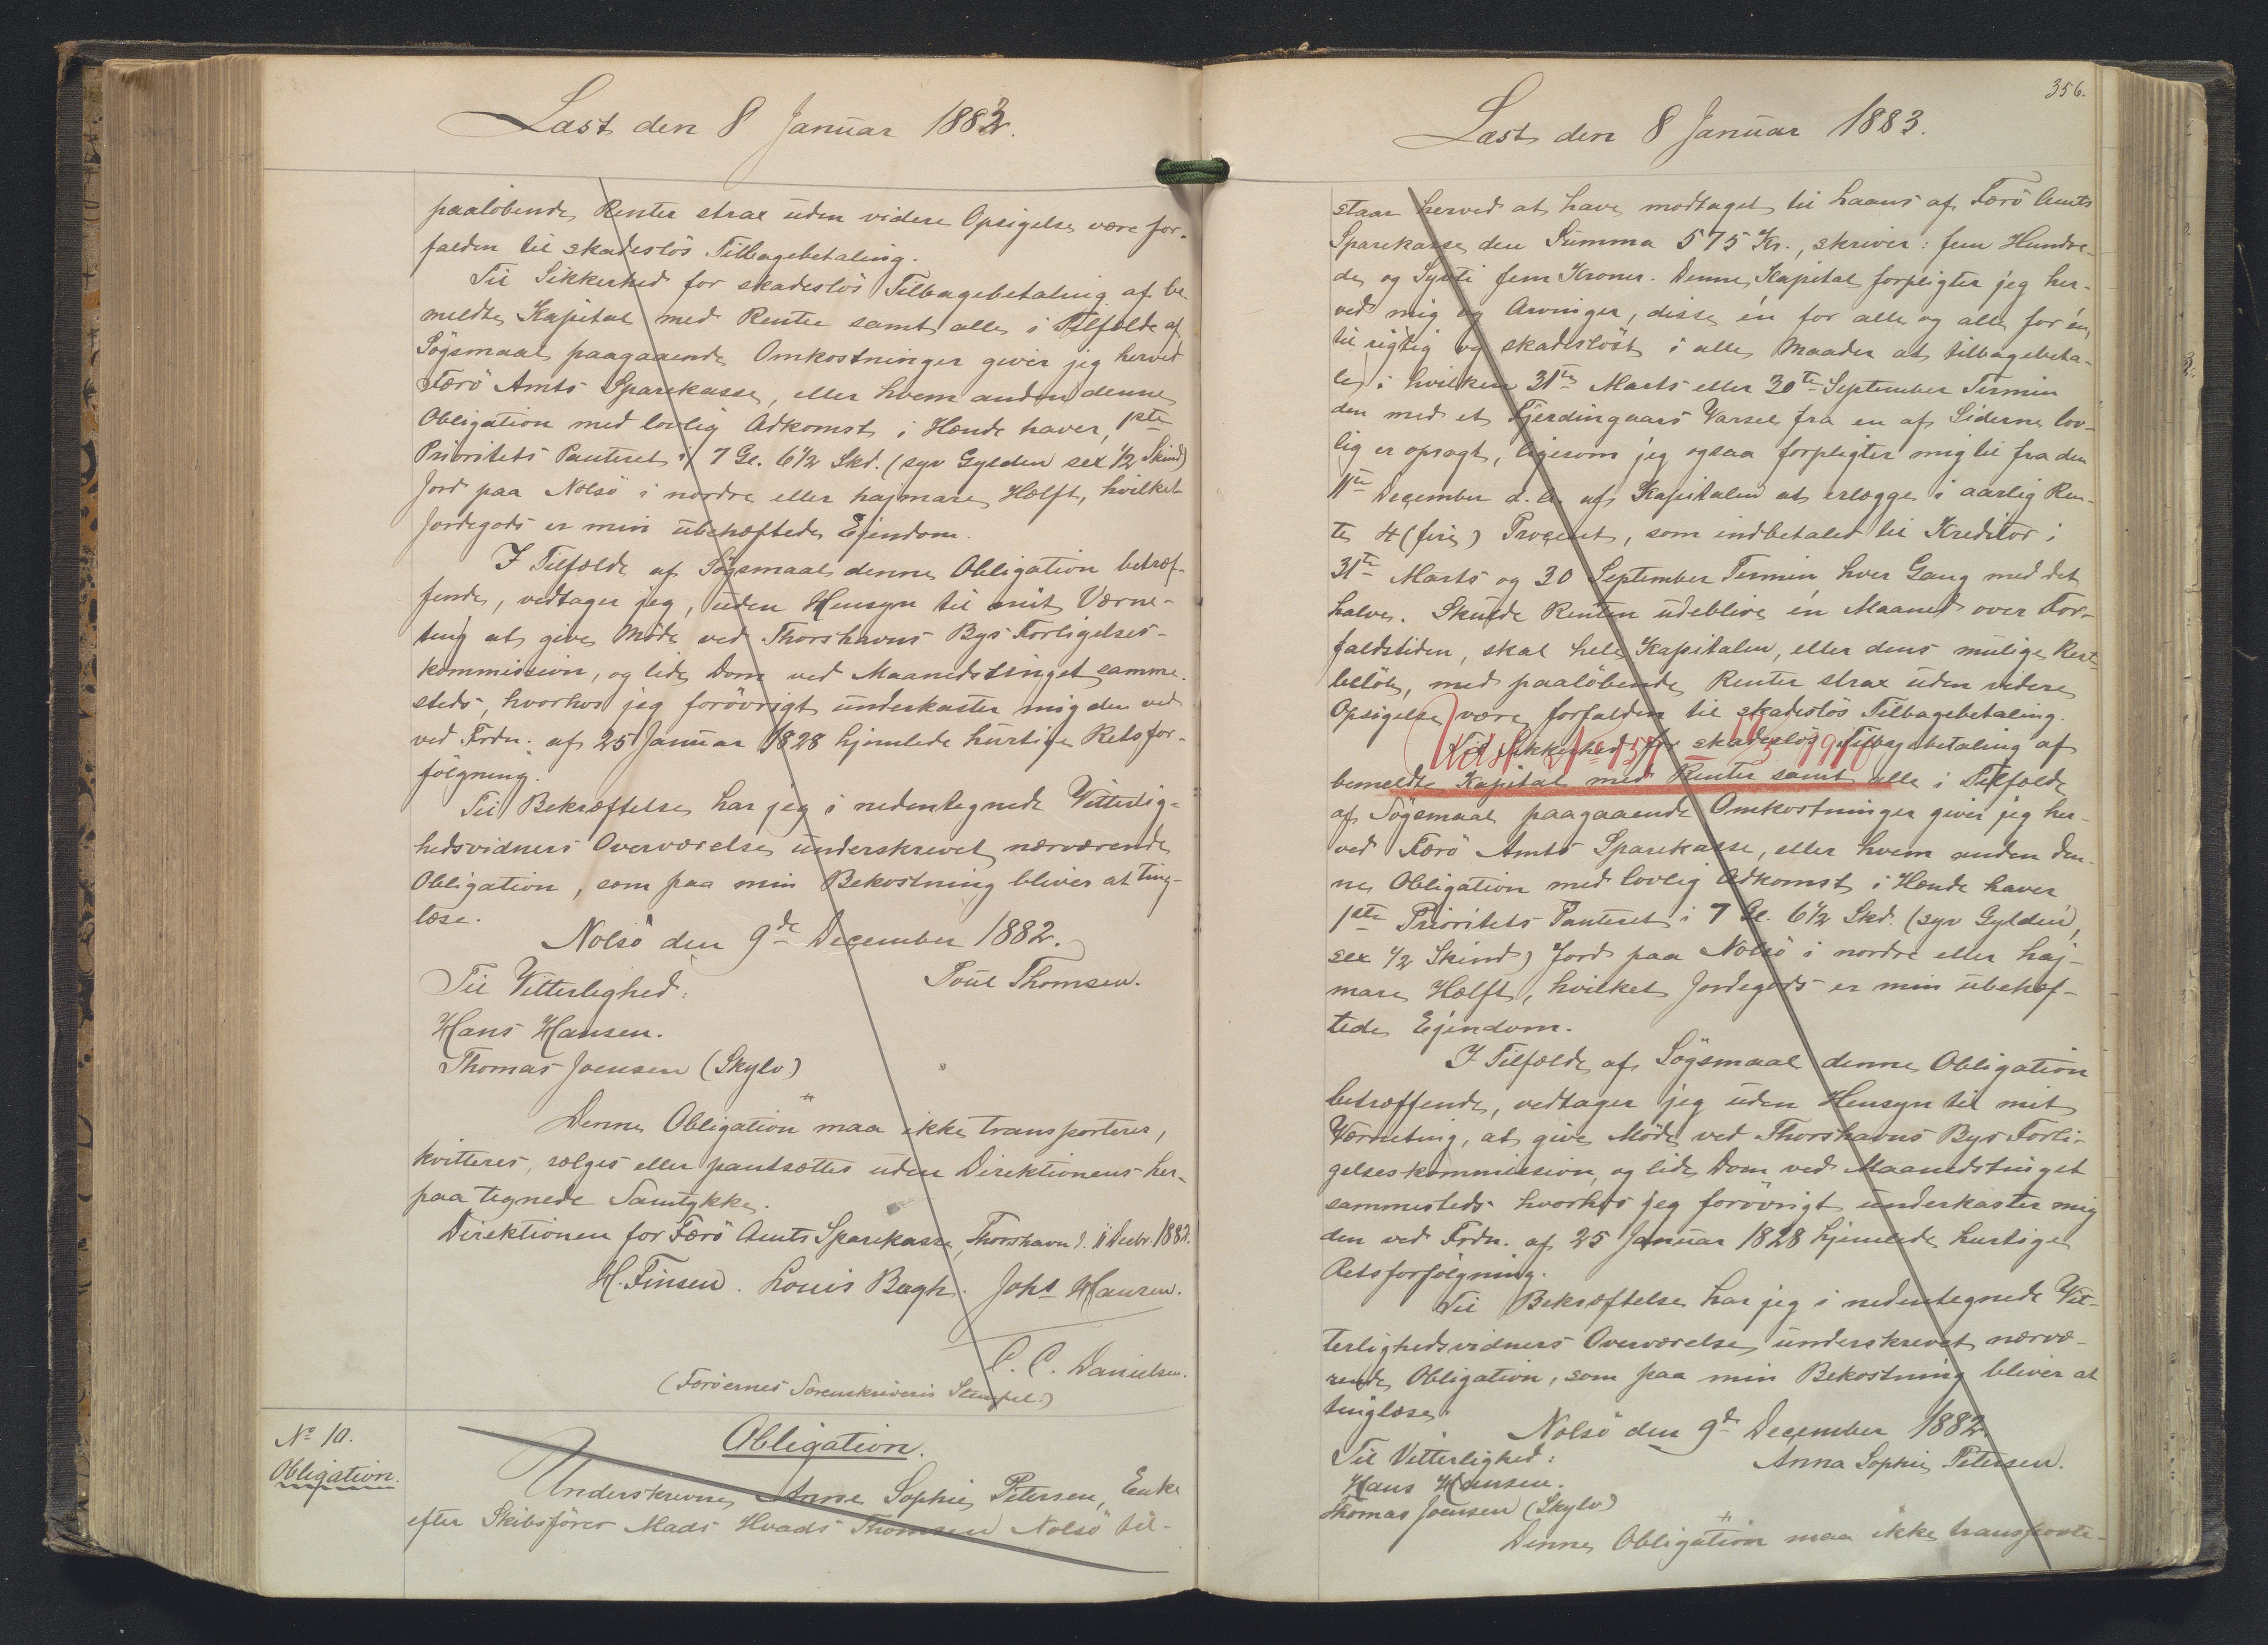 Læst den 8 Januar 1883.
paaløbende Renter strax uden videre Opsigelse være for-
falden til skadesløs Tilbagebetaling.
Til Sikkerhed for skadesløs Tilbagebetaling af be-
meldte Kapital med Renter samt alle i Tilfælde af
Søgsmaal paagaaende Omkostninger giver jeg herved
Færø Amts Sparekasse, eller hvem anden denne
Obligation med lovlig Adkomst i Hænde haver, 1ste
Prioritets Panteret i 7 Gl. 6 1/2 Skd. (syv Gylden sex 1/2 Skind)
Jord paa Nolsø i nordre eller hajmare Hælft, hvilket
Jordegods er min ubehæftede Ejendom.
I Tilfælde af Søgsmaal denne Obligation betræf-
fende, vedtager jeg, uden Hensyn til mit Værne-
ting at give Møde ved Thorshavns Bys Forligelses-
kommission, og lide Dom ved Maanedstinget samme-
steds, hvorhos jeg forøvrigt underkaster mig den ved
ved Frdn. af 25 Januar 1828 hjemlede hurtige Retsfor-
følgning.
Til Bekræftelse har jeg i nedentegnede Vitterlig-
hedsvidners Overværelse underskrevet nærværende
Obligation, som paa min Bekostning bliver at ting-
læse.
Nolsø den 9de December 1882.
Til Vitterlighed: Poul Thomsen.
Hans Hansen.
Thomas Joensen (Skylv)
"
Denne Obligation maa ikke transporteres,
kvitteres, sælges eller pantsættes uden Direktionens her-
paa tegnede Samtykke.
Direktionen for Færø Amts Sparekasse, Thorshavn d. 11 Decbr. 1882.
H. Finsen. Louis Bagh. Johs Hansen.
C. C. Danielsen.
(Færøernes Sorenskriveris Stempel.)
No 10.
Obligation.
Obligation.
Underskrevne Anne Sophie Petersen, Enke
efter Skibsfører Mads Hvads Thomsen Nolsø til-
356.
Læst den 8 Januar 1883.
staar herved at have modtaget til Laans af Færø Amts
Sparekasse den Summa 575 Kr., skriver: fem Hundre-
de og Syvti fem Kroner. Denne Kapital forpligter jeg her-
ved mig og Arvinger, disse én for alle og alle for én,
til rigtig og skadesløst i alle Maader at tilbagebeta-
le i hvilken 31te Marts eller 30te September Termin
den med et Fjerdingaars Varsel fra en af Siderne lov-
lig er opsagt, ligesom jeg ogsaa forpligter mig til fra den
11te December d.A. af Kapitalen at erlægge i aarlig Ren-
te 4 (fire) Procent, som indbetales til Kreditor i
31te Marts og 30 September Termin hver Gang med det
halve. Skulde Renten udeblive én Maaned over For-
faldstiden, skal hele Kapitalen, eller dens mulige Rest-
beløb, med paaløbende Renter strax uden videre
Opsigelse være forfalden til skadesløs Tilbagebetaling.
Til Sikkerhed for skadesløs Tilbagebetaling af
bemeldte Kapital med Renter samt alle i Tilfælde
af Søgsmaal paagaaende Omkostninger giver jeg her-
ved Færø Amts Sparekasse, eller hvem anden den-
ne Obligation med lovlig Adkomst i Hænde haver
1ste Prioritets Panteret i 7 Gl. 6 1/2 Skd. (syv Gylden,
sex 1/2 Skind) Jord paa Nolsø i nordre eller haj-
mare Hælft, hvilket Jordegods er min ubehæf-
tede Ejendom.
I Tilfælde af Søgsmaal denne Obligation
betræffende, vedtager jeg uden Hensyn til mit
Værneting, at give Møde ved Thorshavns Bys Forli-
gelseskommission, og lide Dom ved Maanedstinget
sammesteds hvorhos jeg forøvrigt underkaster mig
den ved Frdn. af 25 Januar 1828 hjemlede hurtige
Retsforfølgning.
Til Bekræftelse har jeg i nedentegnede Vit-
terlighedsvidners Overværelse underskrevet nærvæ-
rende Obligation, som paa min Bekostning bliver at
tinglæse.
Nolsø den 9de December 1882.
Til Vitterlighed: Anna Sophie Petersen.
Hans Hansen.
Thomas Joensen (Skylv)
"
Denne Obligation maa ikke transporte-